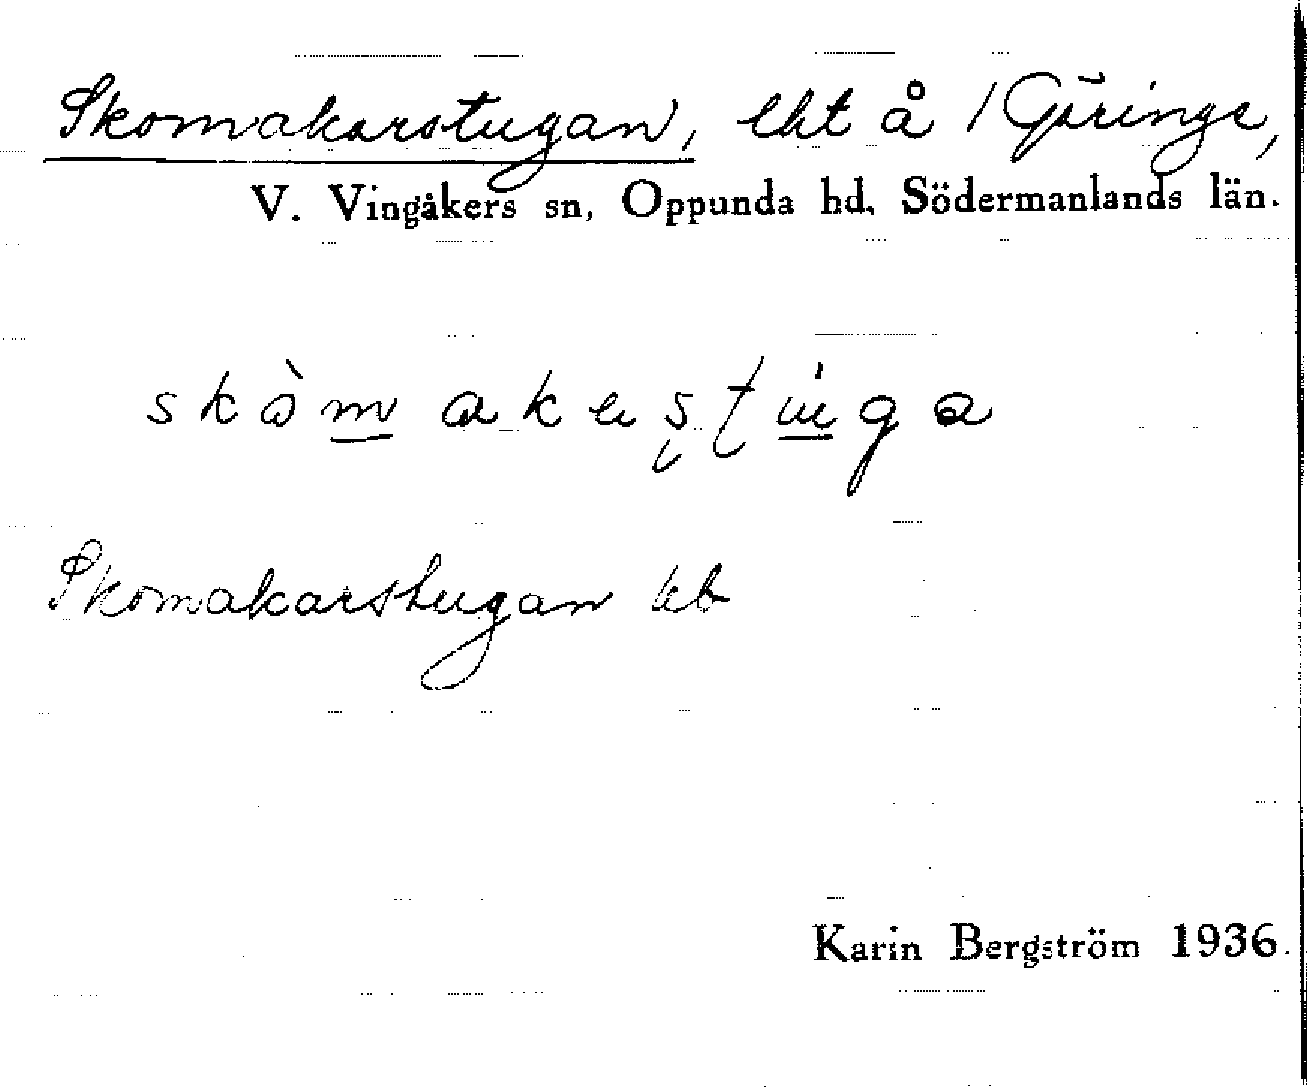 Skomakarstugan, lht å 1 Göringe,
V. Vingåkers sn, Oppunda hd, Södermanlands län.
Skomakarstugan kb
Karin Bergström 1936.